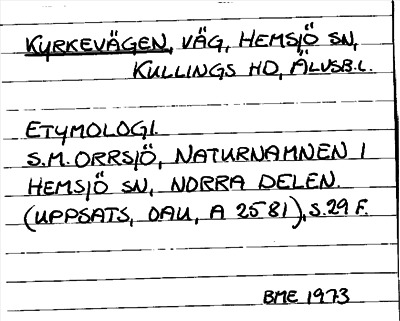 KYRKEVÄGEN, VÄG, HEMSJÖ SN,
KULLINGS HD, ÄLVSB.L.
ETYMOLOGI.
S.M. ORRSJÖ, NATURNAMNEN I
HEMSJÖ SN, NORRA DELEN.
(UPPSATS, DAU, A 2581), S.29 F.
BME 1973